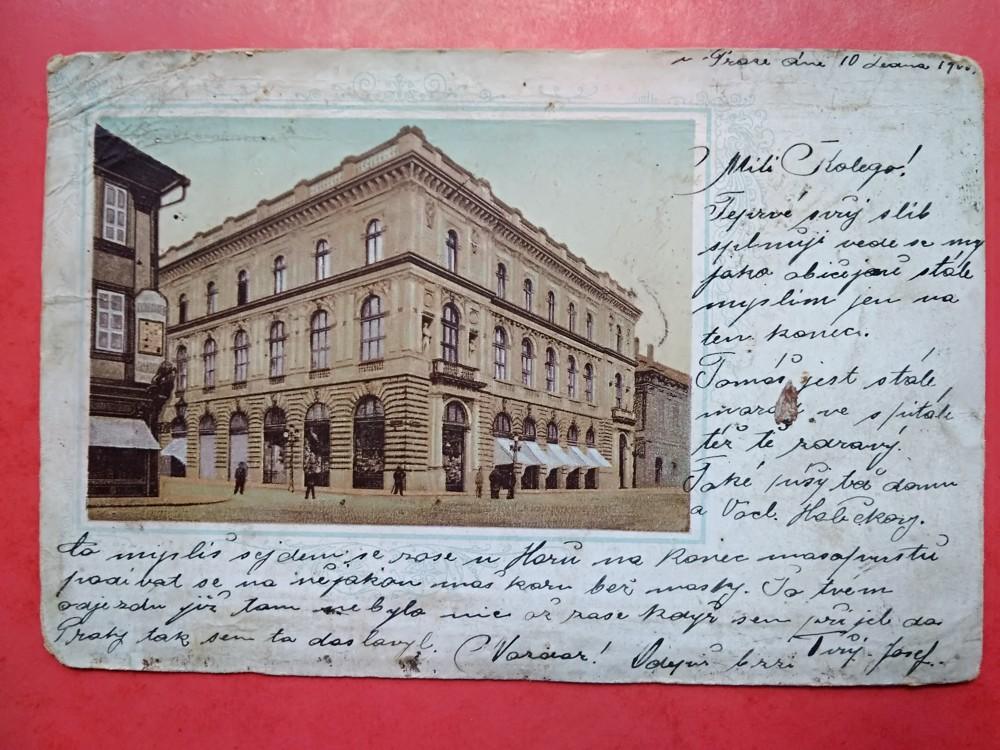 v Praze dne 10 ledna
Milý Kolego!
Teprvé svůj slib
splnuji vede se my
jako običejně stále
myslim jen na
ten konec.
Tomáš jest stále
ve spitále
též tě zdravý.
Také
a Václ. Holičkovy.
co myslíš sejdem se zase u Horů na konec masopustu
podívat se na nějakou maškaru bez masky. Po tvém
odjezdu již tam nebylo nic až zase když sem přijel do
Prahy tak sem to doslavyl. Nazdar! Odepiš brzi Tvůj Josef.